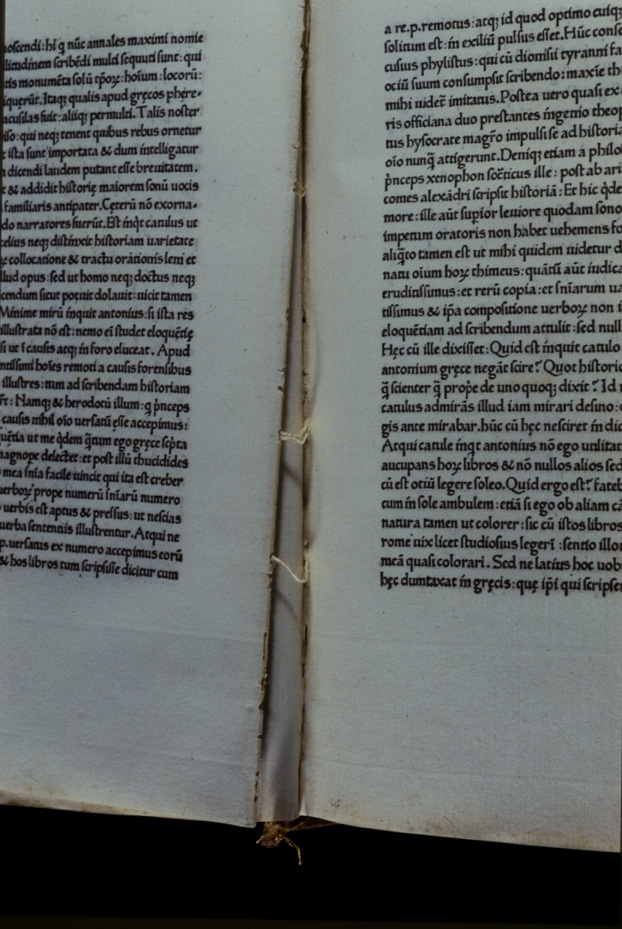 noscendi: hi q̃ nũc annales maximi nomie
litudinem scribẽdi multi sequuti sunt: qui
tis monumẽta solũ tp̃oꝝ: hoĩum: locorũ:
iquerũt. Itaq; qualis apud gręcos phere-
acusilas fuit: aliiq; permulti. Talis noster
iso: qui neq; tenent quibus rebus ornetur
e ista sunt importata & dum intelligatur
n dicendi laudem putant esse breuitatem.
t & addidit historię maiorem sonũ uocis
familiaris antipater. Cęterũ nõ exorna-
do narratores fuerũt. Est inq̃t catulus ut
celius neq; distinxit historiam uarietate
ꝝ collocatione & tractu orationis leni et
llud opus: sed ut homo neq; doctus neq;
cendum sicut potuit dolauit: uicit tamen
Minime mirũ inquit antonius: si ista res
illustrata nõ est: nemo eĩ studet eloquẽtię
si ut ĩ causis atq; in foro eluceat. Apud
ntissimi hoĩes remoti a causis forensibus
illustres: tum ad scribendam historiam
r̃t: Namq; & herodotũ illum: q̃ p̃nceps
causis nihil oĩo uersatũ esse accepimus:
quẽtia ut me q̃dem q̃tum ego gręce scp̃ta
magnope delectet: et post illũ thucidides
mea snĩa facile uincit qui ita est creber
uerboꝝ prope numerũ snĩarũ numero
uerbis est aptus & pressus: ut nescias
uerba sententiis illustrentur. Atqui ne
p. uersatus ex numero accepimus eorũ
& hos libros tum scripsisse dicitur cum
a re.p. remotus: atq; id quod optimo cuiq;
solitum est: in exiliũ pulsus esset. Hũc conse
cusius phylistus: qui cũ dionisii tyranni fa
ociũ suum consumpsit scribendo: maxĩe th
mihi uidet̃ imitatus. Postea uero quasi ex
ris officiana duo prestantes ingenio theop
tus hysocrate magr̃o impulsi se ad historia
oĩo nunq̃ attigerunt. Deniq; etiam a philos
p̃nceps xenophon socr̃ticus ille: post ab ari
comes alexãdri scripsit historiã: Et hic q̃de
more: ille aũt sup̃ior leuiore quodam sono
impetum oratoris non habet uehemens fo
aliq̃to tamen est ut mihi quidem uidetur d
natu oĩum hoꝝ thimeus: quãtũ aũt iudica
eruditissimus: et rerũ copia: et snĩarum ua
tissimus & ip̃a compositione uerboꝝ non i
eloquẽtiam ad scribendum attulit: sed null
Hęc cũ ille dixisset: Quid est inquit catulo
antonium gręce negãt scire? Quot historic
q̃ scienter q̃ prop̃e de uno quoq; dixit? Id
catulus admirãs illud iam mirari desino: q
gis ante mirabar. hũc cũ hęc nesciret in dic
Atqui catule inq̃t antonius nõ ego utilitat
aucupans hoꝝ libros & nõ nullos alios sed
cũ est otiũ legere soleo. Quid ergo est? fateb
cum in sole ambulem: etiã si ego ob aliam cã
natura tamen ut colorer: sic cũ istos libros
rome uix licet studiosius legerĩ: sentio illor
meã quasi colorari. Sed ne latius hoc uob
hęc dumtaxat in gręcis: quę ip̃i qui scripser